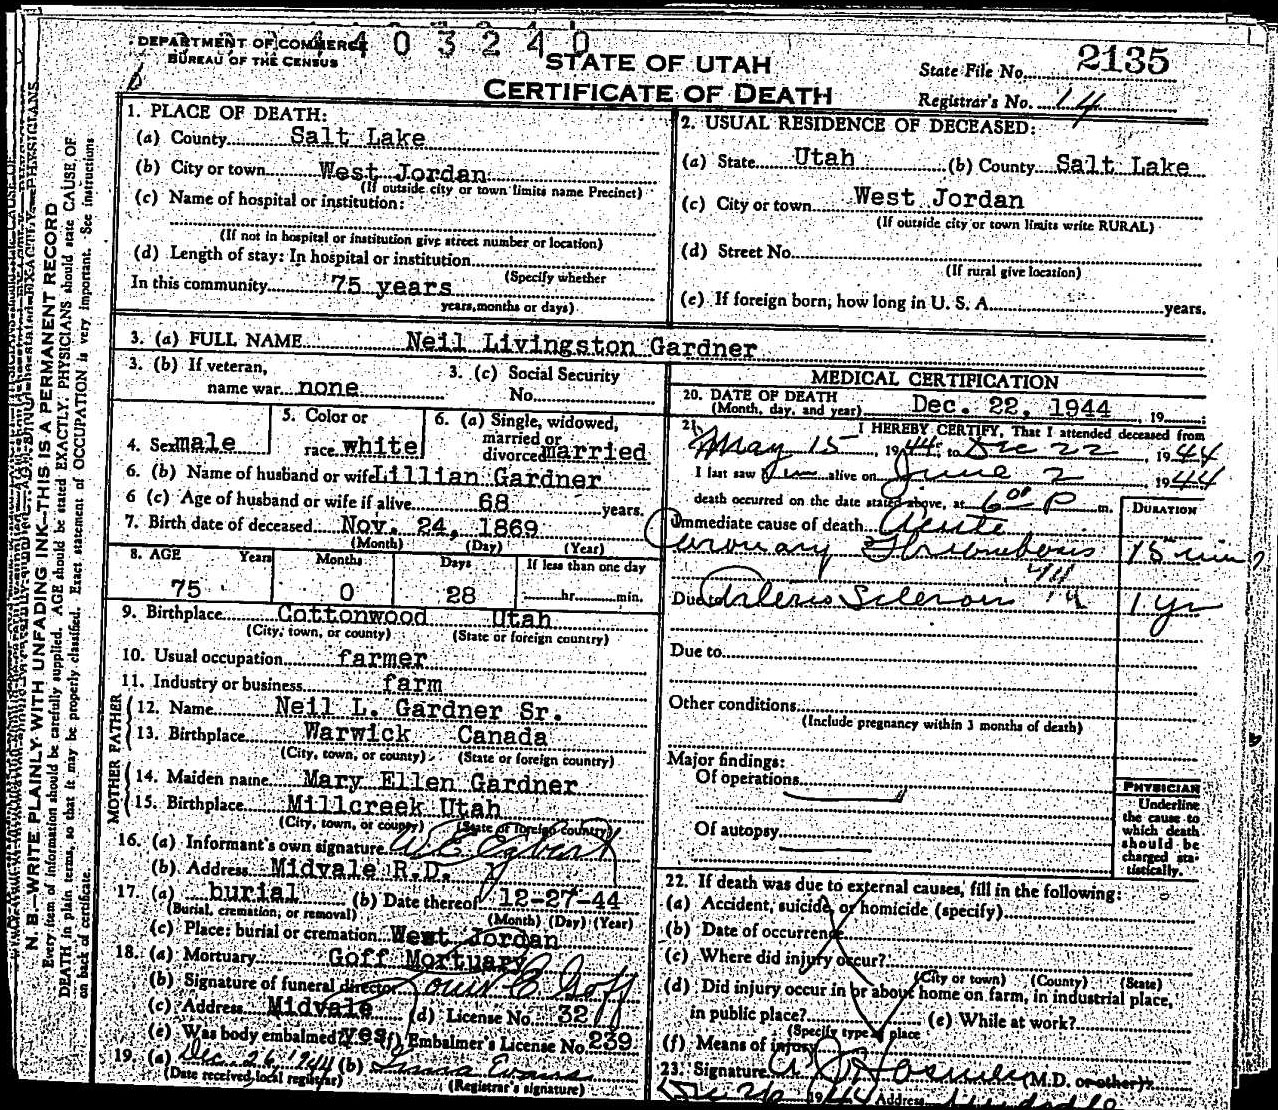 DEPARTMENT OF COMMERCE
BUREAU OF THE CENSUS
4 4 0 3 2 4 0
STATE OF UTAH
CERTIFICATE OF DEATH
State File No. 2135
Registrar's No. 14
N. B.—WRITE PLAINLY WITH UNFADING INK—THIS IS A PERMANENT RECORD
Every item of information should be carefully supplied. AGE should be stated EXACTLY. PHYSICIANS should state CAUSE OF
DEATH in plain terms, so that it may be properly classified. Exact statement of OCCUPATION is very important. See instructions
on back of certificate.
1. PLACE OF DEATH:
(a) County Salt Lake
(b) City or town West Jordan
(If outside city or town limits name Precinct)
(c) Name of hospital or institution:
(If not in hospital or institution give street number or location)
(d) Length of stay: In hospital or institution
(Specify whether
In this community 75 years
years, months or days)
2. USUAL RESIDENCE OF DECEASED:
(a) State Utah (b) County Salt Lake
(c) City or town West Jordan
(If outside city or town limits write RURAL)
(d) Street No.
(If rural give location)
(e) If foreign born, how long in U. S. A. years.
3. (a) FULL NAME Neil Livingston Gardner
3. (b) If veteran, name war none
3. (c) Social Security No.
4. Sex male
5. Color or race white
6. (a) Single, widowed, married or divorced married
6. (b) Name of husband or wife Lillian Gardner
6 (c) Age of husband or wife if alive 68 years.
7. Birth date of deceased Nov. 24, 1869
(Month) (Day) (Year)
8. AGE Years Months Days If less than one day
75 0 28 hr. min.
9. Birthplace Cottonwood Utah
(City, town, or county) (State or foreign country)
10. Usual occupation farmer
11. Industry or business farm
FATHER
12. Name Neil L. Gardner Sr.
13. Birthplace Warwick Canada
(City, town, or county) (State or foreign country)
MOTHER
14. Maiden name Mary Ellen Gardner
15. Birthplace Millcreek Utah
(City, town, or county) (State or foreign country)
16. (a) Informant's own signature W E Egbert
(b) Address Midvale R.D.
17. (a) burial (b) Date thereof 12-27-44
(Burial, cremation, or removal) (Month) (Day) (Year)
(c) Place: burial or cremation West Jordan
18. (a) Mortuary Goff Mortuary
(b) Signature of funeral director Louis E Goff
(c) Address Midvale (d) License No. 32
(e) Was body embalmed? yes (f) Embalmer's License No. 239
19. (a) Dec. 26, 1944 (b) Evans
(Date received local registrar) (Registrar's signature)
MEDICAL CERTIFICATION
20. DATE OF DEATH
(Month, day, and year) Dec. 22, 1944, 19
21. I HEREBY CERTIFY, That I attended deceased from
May 15, 1944, to Dec 22, 1944
I last saw him alive on June 2, 1944
death occurred on the date stated above, at 6 00 P m.
DURATION
Immediate cause of death Acute
Coronary Thrombosis 15 min
Due to Arterio Sclerosis 1 yr
Due to
Other conditions
(Include pregnancy within 3 months of death)
Major findings:
Of operations
Of autopsy
PHYSICIAN
Underline
the cause to
which death
should be
charged sta-
tistically.
22. If death was due to external causes, fill in the following:
(a) Accident, suicide, or homicide (specify)
(b) Date of occurrence
(c) Where did injury occur?
(City or town) (County) (State)
(d) Did injury occur in or about home on farm, in industrial place,
in public place? (e) While at work?
(Specify type of place
(f) Means of injury
23. Signature (M.D. or other)
Dec 26 1944 Address